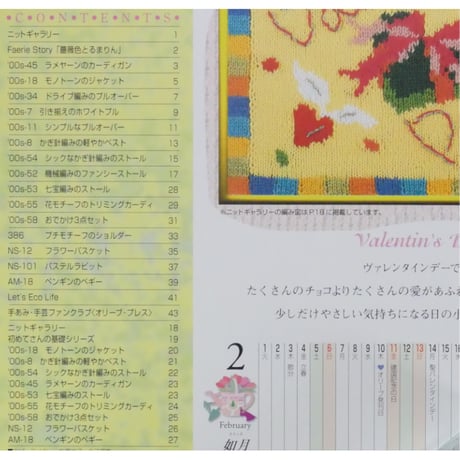 ・C・O・N・T・E・N・T・S・
ニットギャラリー 1
Faerie Story「薔薇色とるまりん」 2
'00s-45 ラメヤーンのカーディガン 3
'00s-18 モノトーンのジャケット 5
'00s-34 ドライブ編みのプルオーバー 7
'00s-7 引き揃えのホワイトブル 9
'00s-11 シンプルなプルオーバー 11
'00s-8 かぎ針編みの軽やかベスト 13
'00s-54 シックなかぎ針編みのストール 15
'00s-52 機械編みのファンシーストール 17
'00s-53 七宝編みのストール 28
'00s-55 花モチーフのトリミングカーディ 29
'00s-58 おでかけ3点セット 31
386 プチモチーフのショルダー 33
NS-12 フラワーバスケット 35
NS-101 パステルラビット 37
AM-18 ペンギンのペギー 39
Let's Eco Life 41
手あみ・手芸ファンクラブ〈オリーブ・プレス〉 43
ニットギャラリー 18
初めてさんの基礎シリーズ 19
'00s-18 モノトーンのジャケット 20
'00s-8 かぎ針編みの軽やかベスト 21
'00s-54 シックなかぎ針編みのストール 22
'00s-45 ラメヤーンのカーディガン 23
'00s-53 七宝編みのストール 23
'00s-55 花モチーフのトリミングカーディ 24
'00s-58 おでかけ3点セット 25
NS-12 フラワーバスケット 26
AM-18 ペンギンのペギー 27
※ニットギャラリーの編み図はP.18に掲載しています。
Valentin's
ヴァレンタインデーで
たくさんのチョコよりたくさんの愛があふ
少しだけやさしい気持ちになる日の小
2
February
如月
1 火
2 水
3 木 節分
4 金 立春
5 土
6 日
7 月
8 火
9 水
10 木 ♥オリーブ発刊日
11 金 建国記念の日
12 土
13 日
14 月 聖バレンタインデー
15 火
16 水